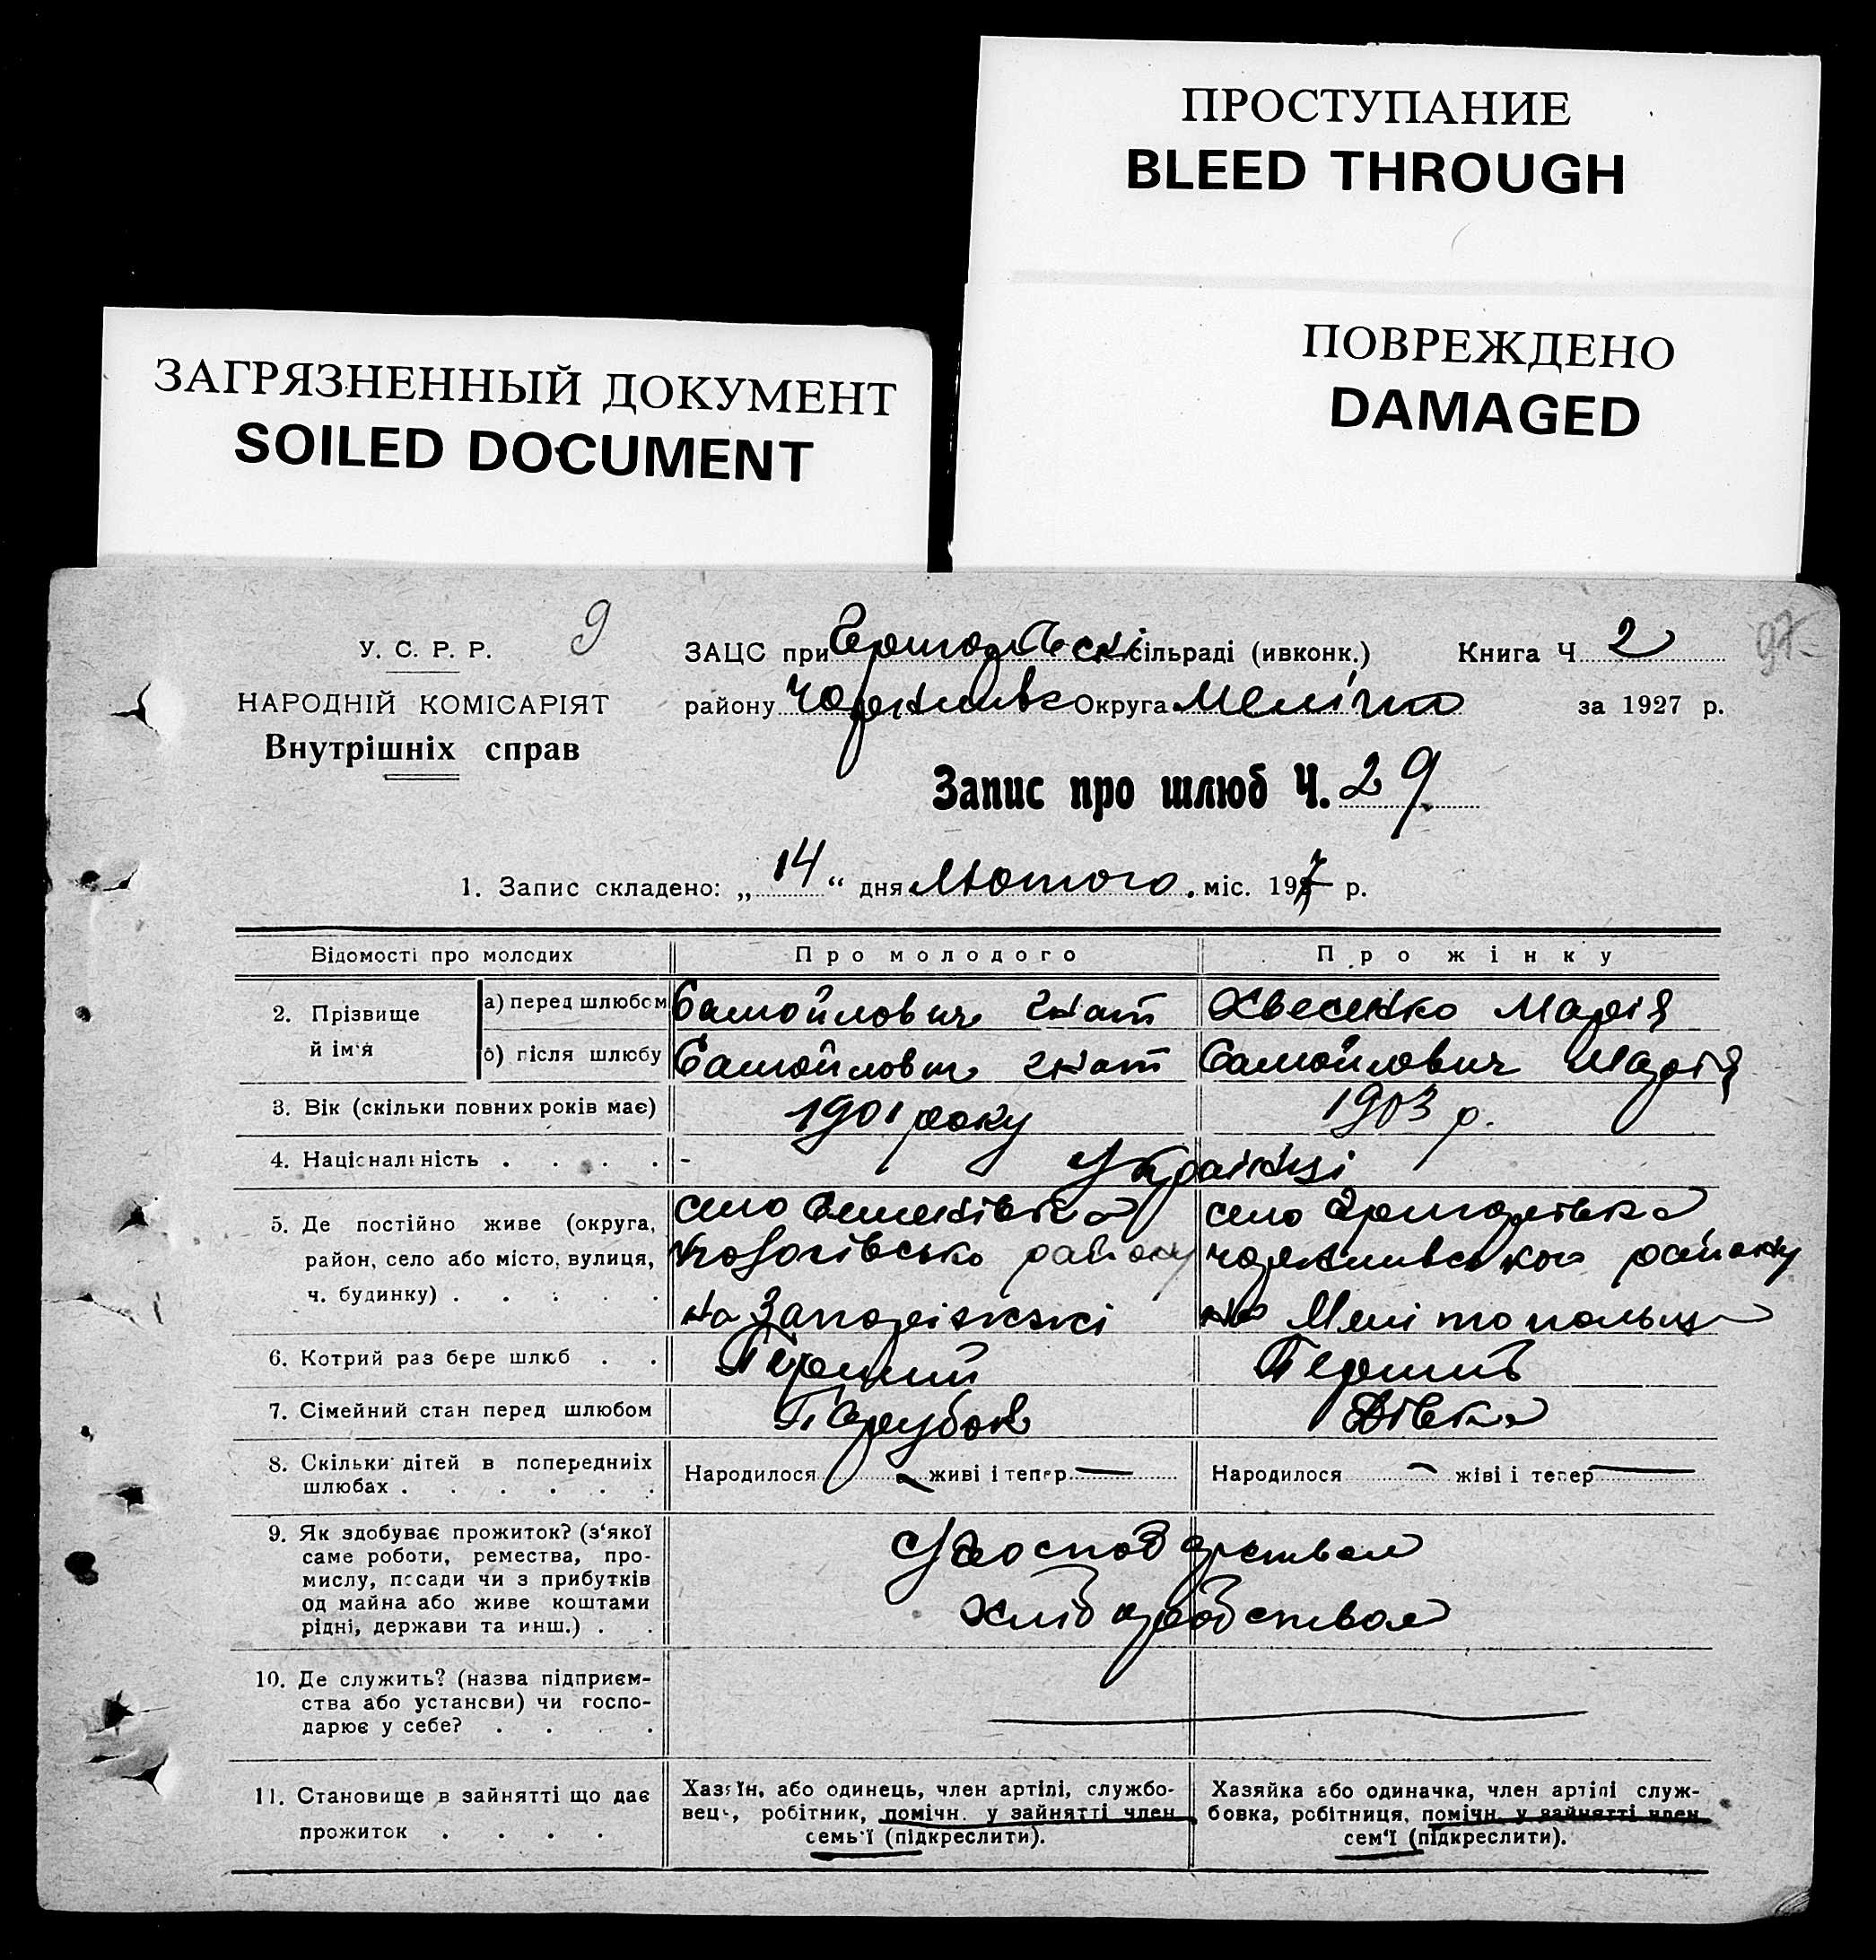 ПРОСТУПАНИЕ
BLEED THROUGH
ПОВРЕЖДЕНО
DAMAGED
ЗАГРЯЗНЕННЫЙ ДОКУМЕНТ
SOILED DOCUMENT
У. С. Р. Р.
9
НАРОДНІЙ КОМІСАРІЯТ
Внутрішніх справ
ЗАЦС при сільраді (ивконк.) Книга Ч. 2
97
району Округа Меліто за 1927 р.
Запис про шлюб Ч. 29
1. Запис складено: „14“ дня Лютого міс. 1927 р.
Відомості про молодих Про молодого Про жінку
2. Прізвище й ім'я
а) перед шлюбом Самойлович Гнат Хвесенко Марія
б) після шлюбу Самойлович Гнат Самойлович Марія
3. Вік (скільки повних років має) 1901 року 1903 р.
4. Національність . . . . Українці
5. Де постійно живе (округа, село село
район, село або місто, вулиця, району району
ч. будинку) . . . . . на на
6. Котрий раз бере шлюб . . Перший Перший
7. Сімейний стан перед шлюбом Парубок Дівка
8. Скільки дітей в попередниіх
шлюбах . . . . . .
Народилося живі і тепер Народилося жіві і тепер
9. Як здобуває прожиток? (з'якої
саме роботи, ремества, про-
мислу, посади чи з прибутків
од майна або живе коштами
рідні, держави та инш.) . .
хліборобством
10. Де служить? (назва підприєм-
ства або установи) чи госпо-
дарює у себе? . . . .
11. Становище в зайнятті що дає
прожиток . . . .
Хазяїн, або одинець, член артілі, службо-
вець, робітник, помічн. у зайнятті член
семь'ї (підкреслити).
Хазяйка або одиначка, член артілі служ-
бовка, робітниця, помічн. у зайнятті член
сем'ї (підкреслити).